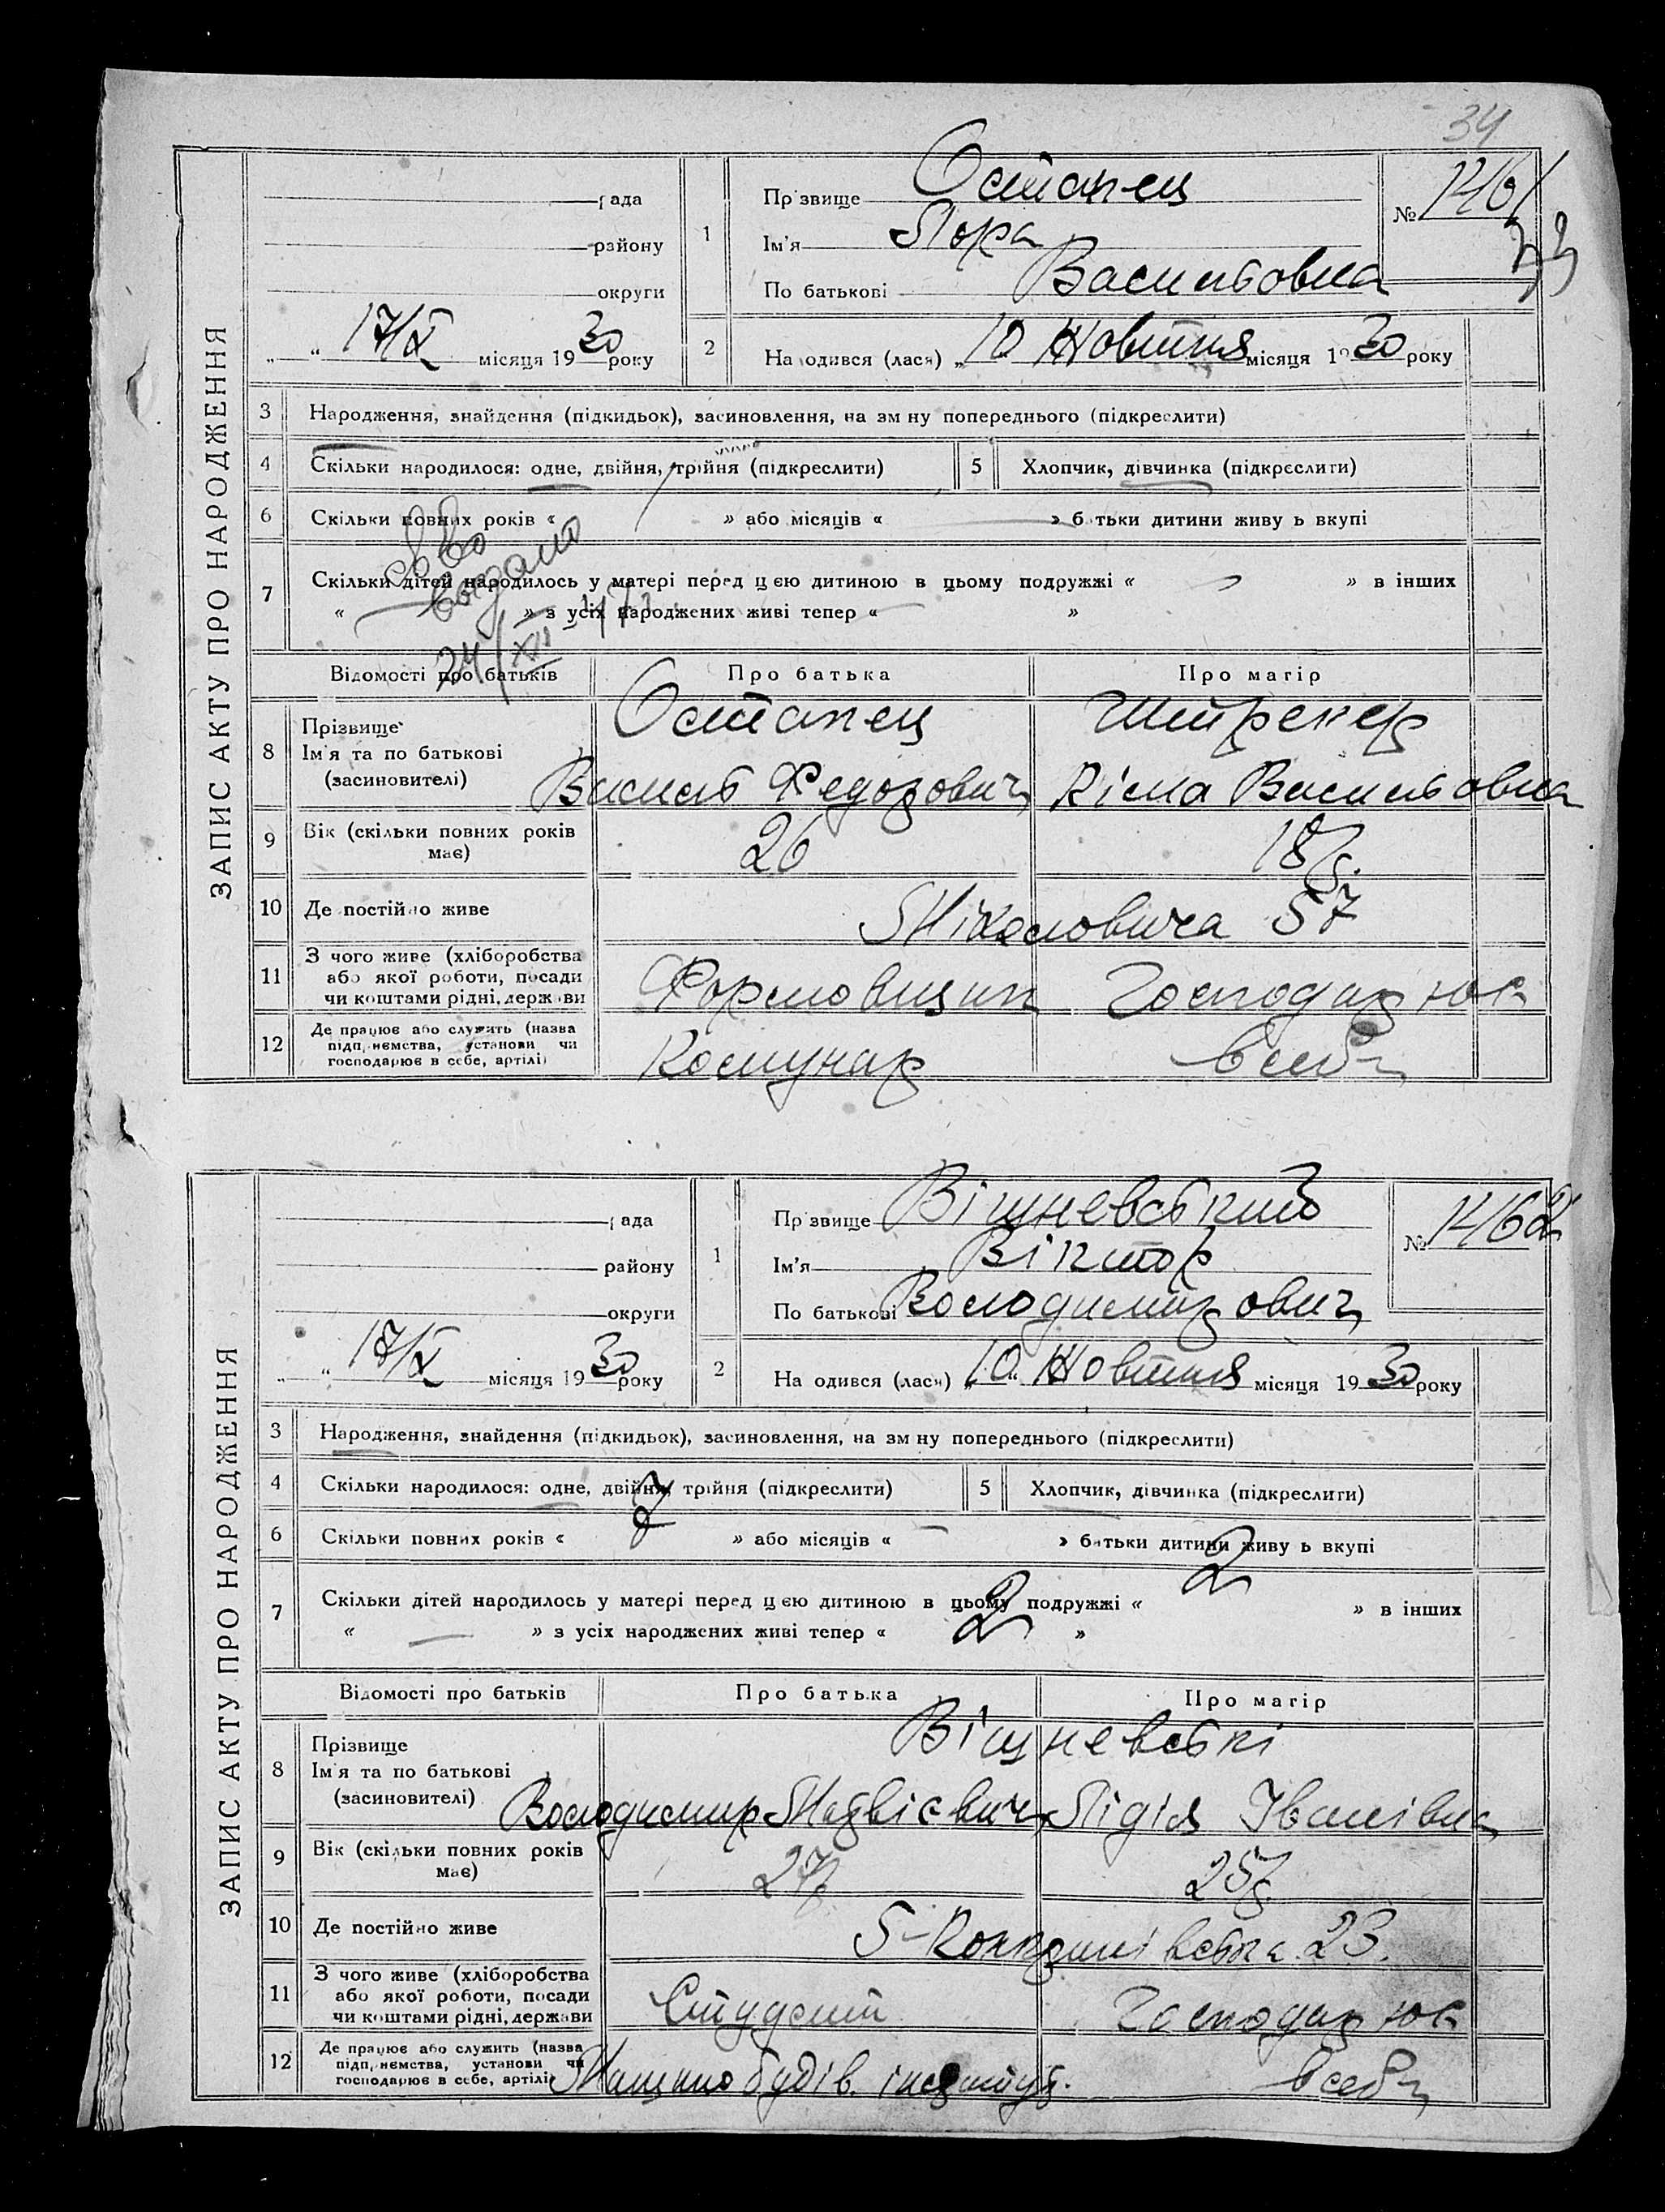 34
ЗАПИС АКТУ ПРО НАРОДЖЕННЯ
рада
району
округи
„ “ 17/X місяця 1930 року
1
Прізвище Остапец
Ім'я Лора
По батькові Васильовна
№ 1461
2
Народився (лася) „10 Жовтня місяця 1930 року
3 Народження, знайдення (підкидьок), засиновлення, на зміну попереднього (підкреслити)
4 Скільки народилося: одне, двійня, трійня (підкреслити)
5 Хлопчик, дівчинка (підкреслити)
6 Скільки повних років « » або місяців « » батьки дитини живуть вкупі
7 Скільки дітей народилось у матері перед цією дитиною в цьому подружжі « » в інших
« » з усіх народжених живі тепер « »
св-во
выдано
24/XII
Відомості про батьків
Про батька
Про матір
8 Прізвище
Ім'я та по батькові
(засиновителі)
Остапец
Василь Федорович
Шпрекер
Ріма Васильовна
9 Вік (скільки повних років має)
26
18 р.
10 Де постійно живе
57
11 З чого живе (хліборобства або якої роботи, посади чи коштами рідні, держави
Формовщик
Господарюе
12 Де працює або служить (назва підприємства, установи чи господарює в себе, артілі)
Комунар
в себе
ЗАПИС АКТУ ПРО НАРОДЖЕННЯ
рада
району
округи
„ “ 17/X місяця 1930 року
1
Прізвище Вішневський
Ім'я Віктор
По батькові Володимирович
№ 1462
2
Народився (лася) „10“ Жовтня місяця 1930 року
3 Народження, знайдення (підкидьок), засиновлення, на зміну попереднього (підкреслити)
4 Скільки народилося: одне, двійня, трійня (підкреслити)
5 Хлопчик, дівчинка (підкреслити)
6 Скільки повних років « » або місяців « — » батьки дитини живуть вкупі
7 Скільки дітей народилось у матері перед цією дитиною в цьому подружжі « 2 » в інших
« — » з усіх народжених живі тепер « 2 »
Відомості про батьків
Про батька
Про матір
8 Прізвище
Ім'я та по батькові
(засиновителі)
Вішневські
Володимир Матвієвич
Лідія Іванівна
9 Вік (скільки повних років має)
27 р.
25 р.
10 Де постійно живе
23.
11 З чого живе (хліборобства або якої роботи, посади чи коштами рідні, держави
Студент
Господарюе
12 Де працює або служить (назва підприємства, установи чи господарює в себе, артілі)
Машинобудів. інститут.
в себе